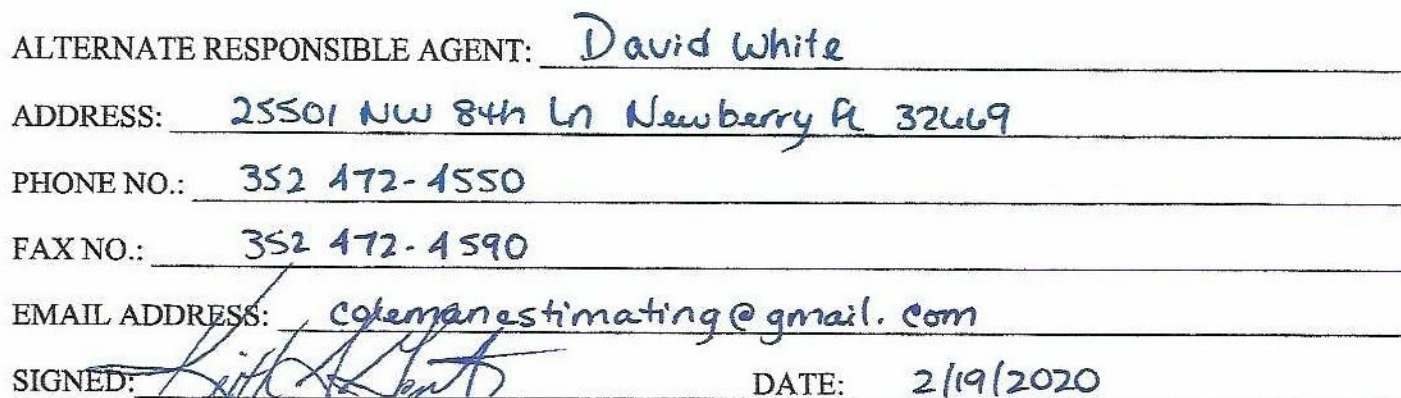 ALTERNATE RESPONSIBLE AGENT: David White
ADDRESS: 25501 NW 84th Ln Newberry FL 32669
PHONE NO.: 352 472-4550
FAX NO.: 352 472-4590
EMAIL ADDRESS: colemanestimating@gmail.com
SIGNED: DATE: 2/19/2020